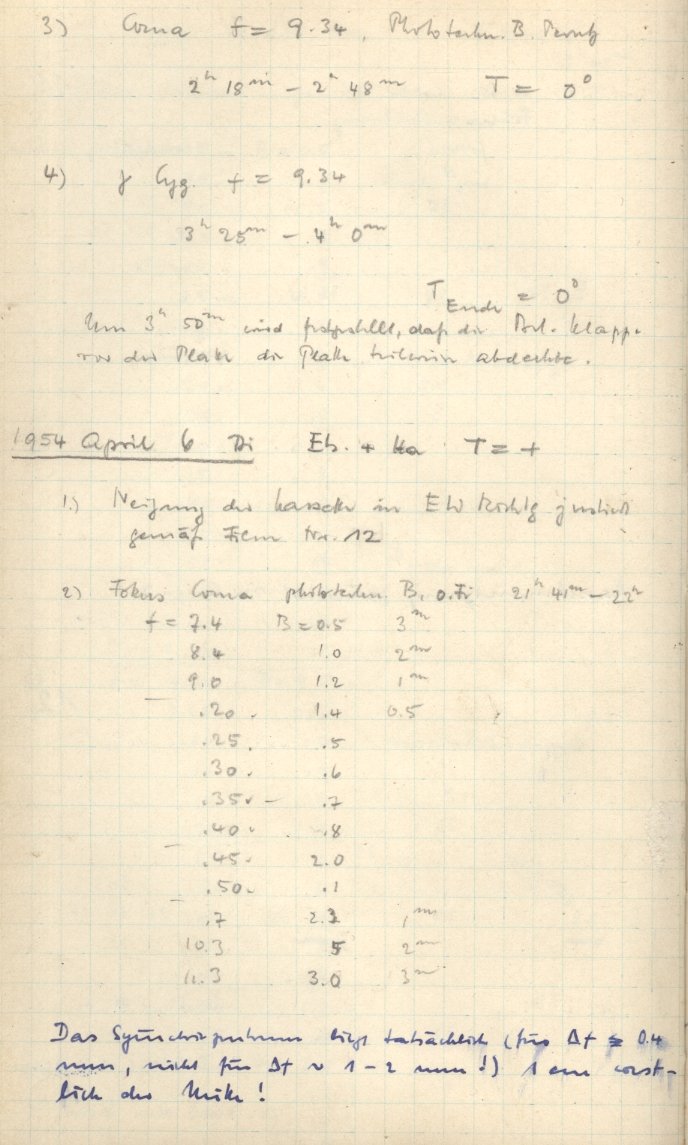 3) Coma f = 9.34, Phototechn. B. Perutz
2h 18m – 2h 48m T = 0°
4) γ Cyg. f = 9.34
3h 25m – 4h 0m
T Ende = 0°
Um 3h 50m wird festgestellt, daß die Bel. Klappe
vor der Platte die Platte teilweise abdeckte.
1954 April 6 Di Eb. + Ha T = +
1.) Neigung der Kassette in richtig justiert
gemäß Film Nr. 12
2) Fokus Coma phototechn. B, o. Fi 21h 41m – 22h
f = 7.4 B = 0.5 3m
8.4 1.0 2m
9.0 1.2 1m
.20 . 1.4 0.5
.25 . .5
.30 . .6
.35 – .7
.40 . .8
.45 . 2.0
.50 . .1
.7 2.3 1m
10.3 5 2m
11.3 3.0 3m
Das Symmetriezentrum liegt tatsächlich (für Δf ≦ 0.4
mm, nicht für Δf ~ 1–2 mm!) 1 cm west-
lich der Mitte!